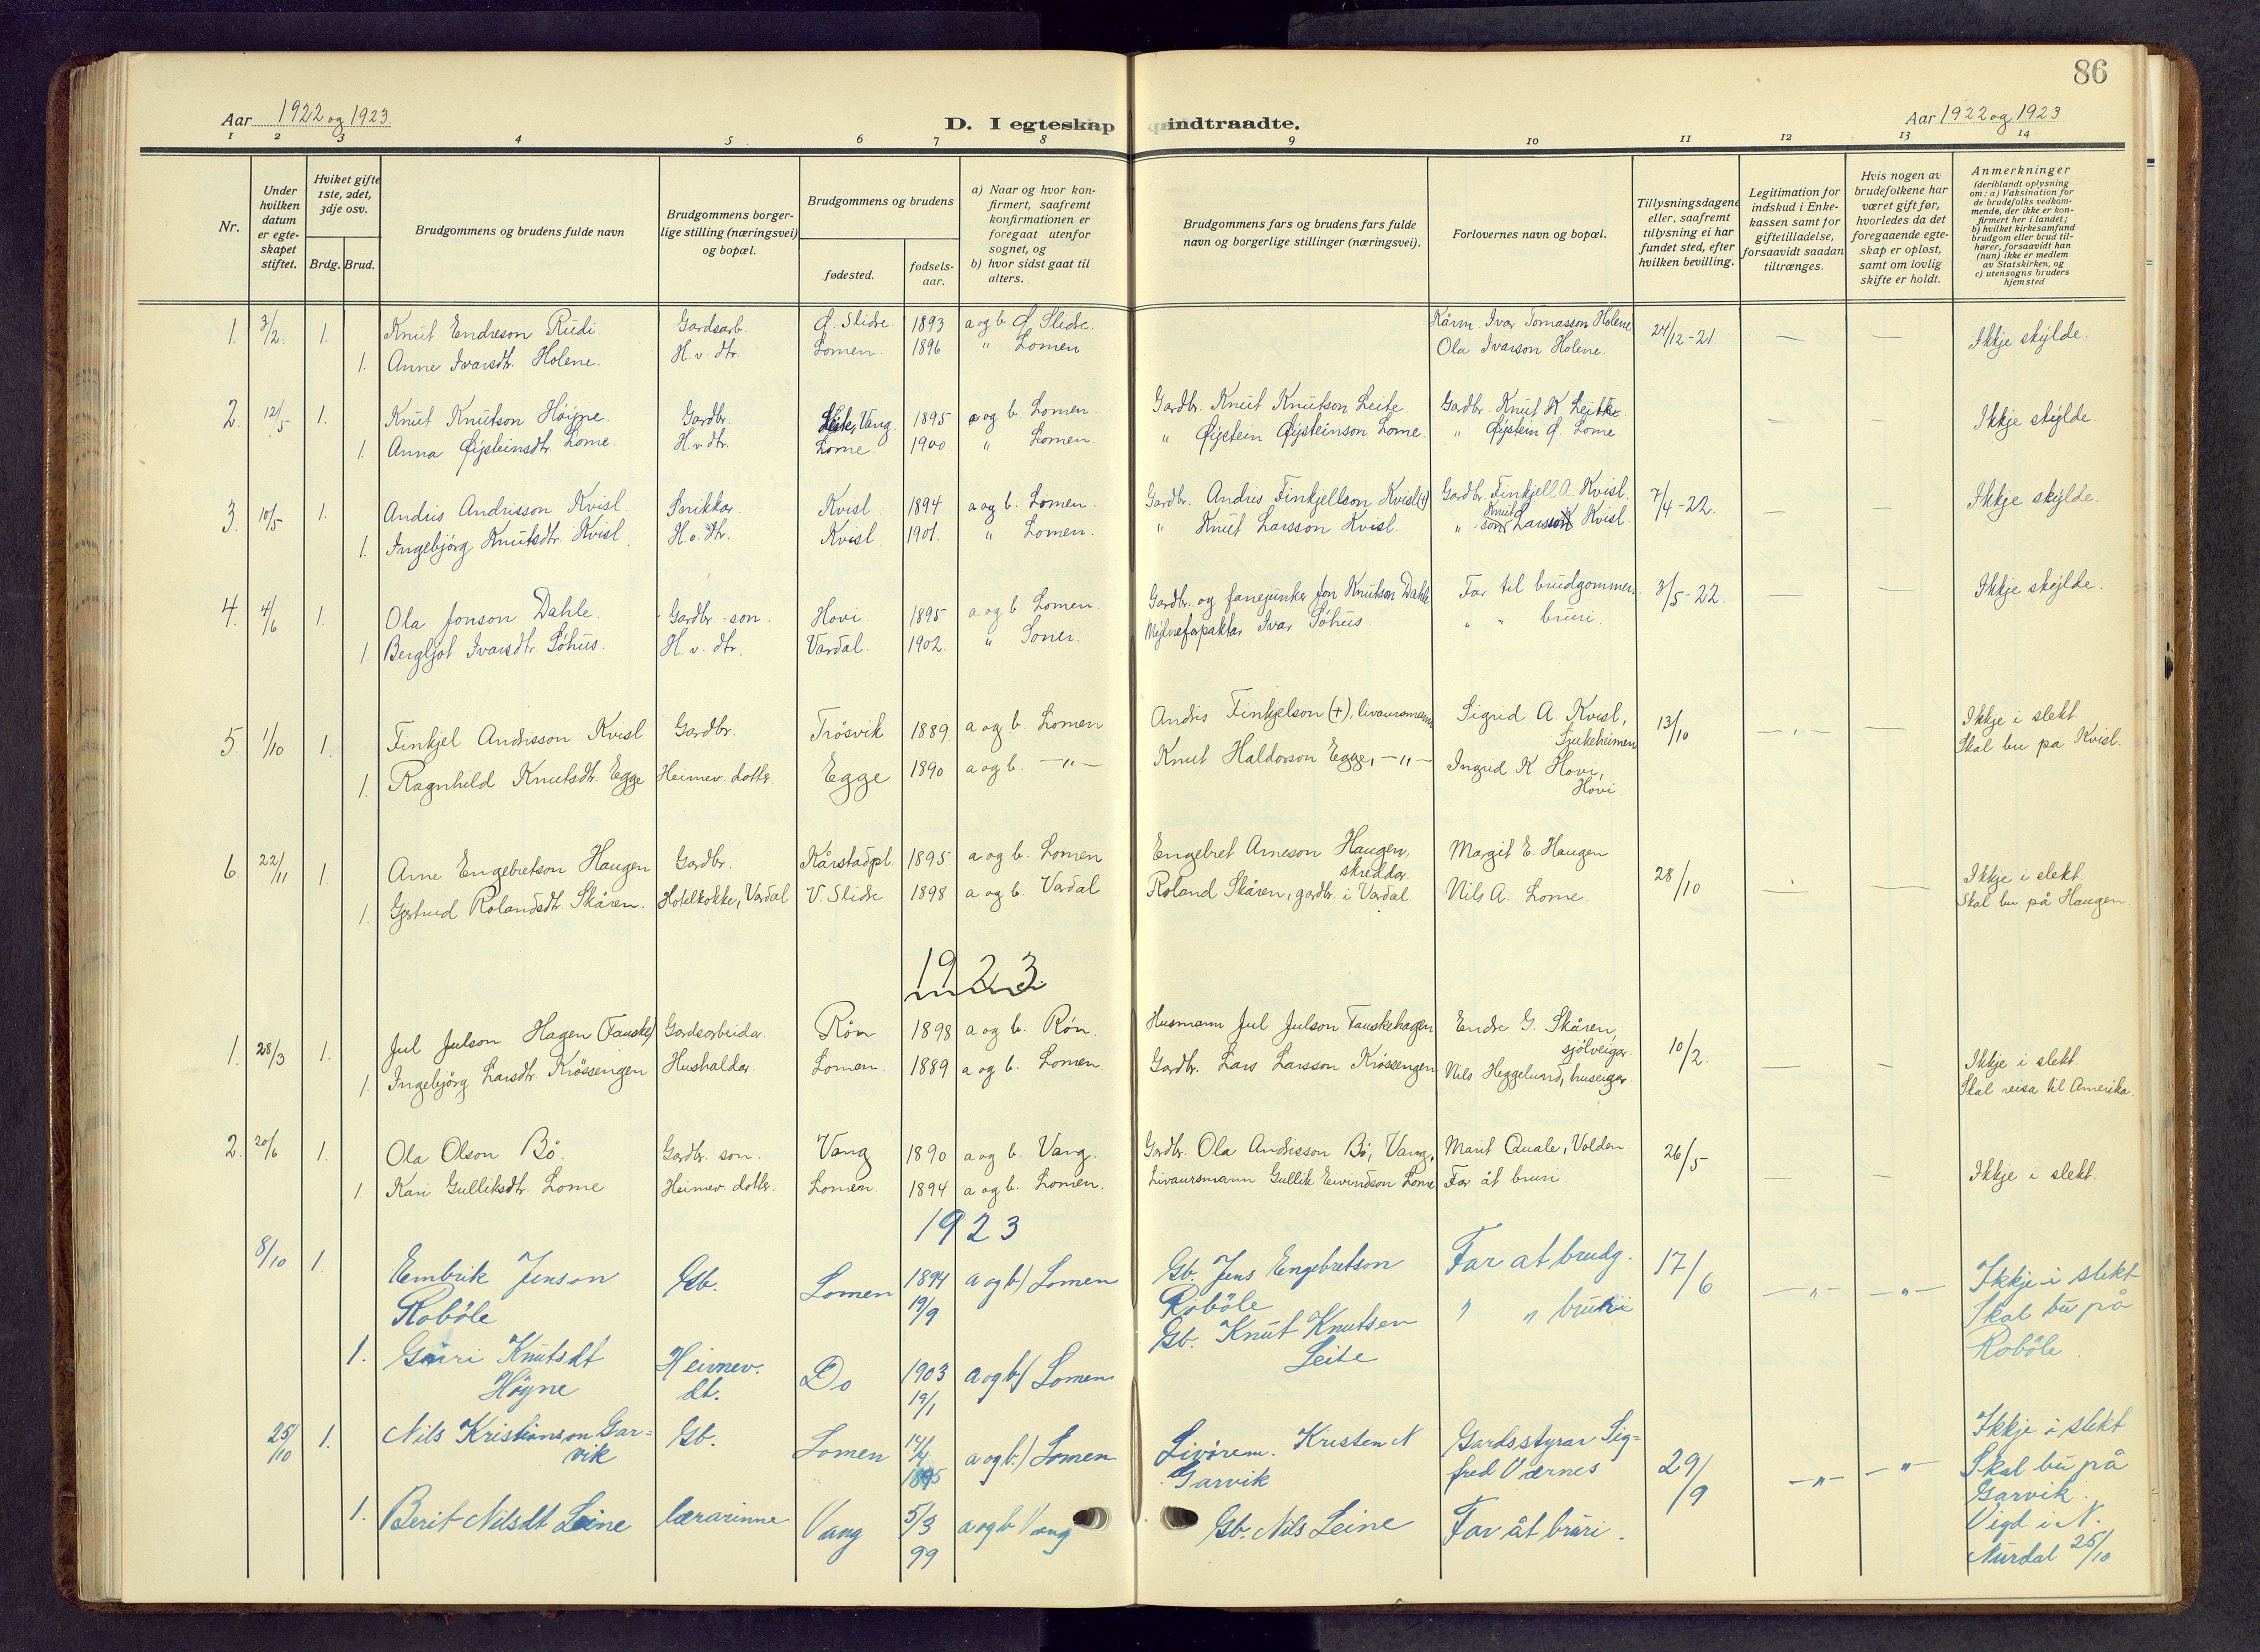 86
Aar 1922 og 1923.
D. I egteskap indtraadte.
Aar 1922 og 1923
1 2 3 4 5 6 7 8 9 10 11 12 13 14
Nr.
Under hvilken datum er egteskapet stiftet.
Hviket gifte 1ste, 2det, 3dje osv.
Brdg. Brud.
Brudgommens og brudens fulde navn
Brudgommens borgerlige stilling (næringsvei) og bopæl.
Brudgommens og brudens
fødested.
fødselsaar.
a) Naar og hvor konfirmert, saafremt konfirmationen er foregaat utenfor sognet, og
b) hvor sidst gaat til alters.
Brudgommens fars og brudens fars fulde navn og borgerlige stillinger (næringsvei).
Forlovernes navn og bopæl.
Tillysningsdagene eller, saafremt tillysning ei har fundet sted, efter hvilken bevilling.
Legitimation for indskud i Enkekassen samt for giftetilladelse, forsaavidt saadan tiltrænges.
Hvis nogen av brudefolkene har været gift før, hvorledes da det foregaaende egteskap er opløst, samt om lovlig skifte er holdt.
Anmerkninger
(deriblandt oplysning om: a) Vaksination for de brudefolks vedkommende, der ikke er konfirmert her i landet;
b) hvilket kirkesamfund brudgom eller brud tilhører, forsaavidt han (hun) ikke er medlem av Statskirken, og
c) utensogns bruders hjemsted
1. 3/2. 1. Knut Endreson Rudi Gardsarb. Ø. Slidre 1893 a og b. Ø. Slidre. Kårm. Ivar Tomasson Holene 24/12-21 — — Ikkje skylde.
1. Anne Ivarsdtr. Holene. H. v. dtr. Lomen. 1896 " Lomen Ola Ivarson Holene.
2. 12/5 1. Knut Knutson Høgne. Gardbr. Vang 1895 a og b. Lomen. Gardbr. Knut Knutson Leite. Gardbr. Knut K. Leite. — — Ikkje skylde
1. Anna Øysteinsdtr. Lome. H. v. dtr. Lome. 1900. " Lomen. " Øystein Øysteinson Lome. " Øystein Ø. Lome.
3. 10/5 1. Andris Andrisson Kvisl. Snikkar. Kvisl. 1894 a og b. Lomen. Gardbr. Andris Finkjellson Kvisl (+) Gardbr. Finkjell A. Kvisl. 7/4-22. — — Ikkje skylde.
1. Ingebjörg Knutsdtr. Kvisl. H. v. dtr. Kvisl. 1901. " Lomen. " Knut Larsson Kvisl. " Knut Larsson Kvisl.
4. 4/6 1. Ola Jonson Dahle. Gardbr.-son. Hovi. 1895 a og b. Lomen. Gardbr. og fanejunker Jon Knutson Dahle Far til brudgommen. 3/5-22. — — Ikkje skylde.
1. Bergljot Ivarsdtr. Söhus. H. v. dtr. Vardal. 1902. " Mylneforpaktar Ivar Söhus. " " bruri.
5. 1/10 1. Finkjel Andrisson Kvisl Gardbr. Trösvik 1889 a og b. Lomen Andris Finkjelson (+), livaursmann Sigrid A. Kvisl, Sjukeheimen 13/10 — — Ikkje i slekt. Skal bu på Kvisl.
1. Ragnhild Knutsdtr. Egge Heimev. dotter. Egge 1890 a og b. —"— Knut Haldorson Egge, —"— Ingrid K. Hovi, Hovi.
6. 22/11 1. Arne Engebretson Haugen Gardbr. Kårstadpl. 1895 a og b. Lomen Engebret Arneson Haugen, skreddar. Margit E. Haugen 28/10 — — Ikkje i slekt. Skal bu på Haugen.
1. Gjertrud Rolandsdtr. Skåren. Hotelkokke, Vardal V. Slidre 1898 a og b. Vardal Roland Skåren, gardbr. i Vardal. Nils A. Lome.
1923.
1. 28/3 1. Jul Julson Hagen (Fauske) Gardsarbeidar. Røn 1898 a og b. Røn. Husmann Jul Julson Fauskehagen Endre G. Skåren, sjölveigar. 10/2 — — Ikkje i slekt. Skal reisa til Amerika.
1. Ingebjörg Larsdtr. Krössengen Hushaldar. Lomen. 1889 a og b. Lomen. Gardbr. Lars Larsson Krössengen Nils Heggelund, huseigar.
2. 20/6 1. Ola Olson Bö. Gardbr. son. Vang 1890 a og b. Vang. Gardbr. Ola Andrisson Bö, Vang, Marit Quale, Volden. 26/5 — — Ikkje i slekt.
1. Kari Gulliksdtr. Lome Heimev. dotter. Lomen. 1894 a og b. Lomen. Livaursmann Gullik Eivindson Lome Far åt bruri.
1923
8/10 1. Embrik Jenson Robøle Gb. Lomen 1894 19/9 a og b) Lomen Gb. Jens Engebretson Robøle Far at brudg. 17/6 —"— —"— Ikkje i slekt Skal bu på Robøle.
1. Guri Knutsdt Høgne Heimev. dt. Do 1903 19/1 a og b) Lomen Gb. Knut Knutsen Leite " " bruri
25/10 1. Nils Kristianson Garvik Gb. Lomen 14/4 1895 a og b.) Lomen Livørem. Kristen N Garvik Gardsstyrar Sigfred Værnes 29/9 —"— —"— Ikkje i slekt Skal bu på Garvik. Vigd i N. Aurdal 25/10
1. Berit Nilsdt Leine lærarinne Vang 5/3 99 a og b Vang Gb. Nils Leine Far åt bruri.